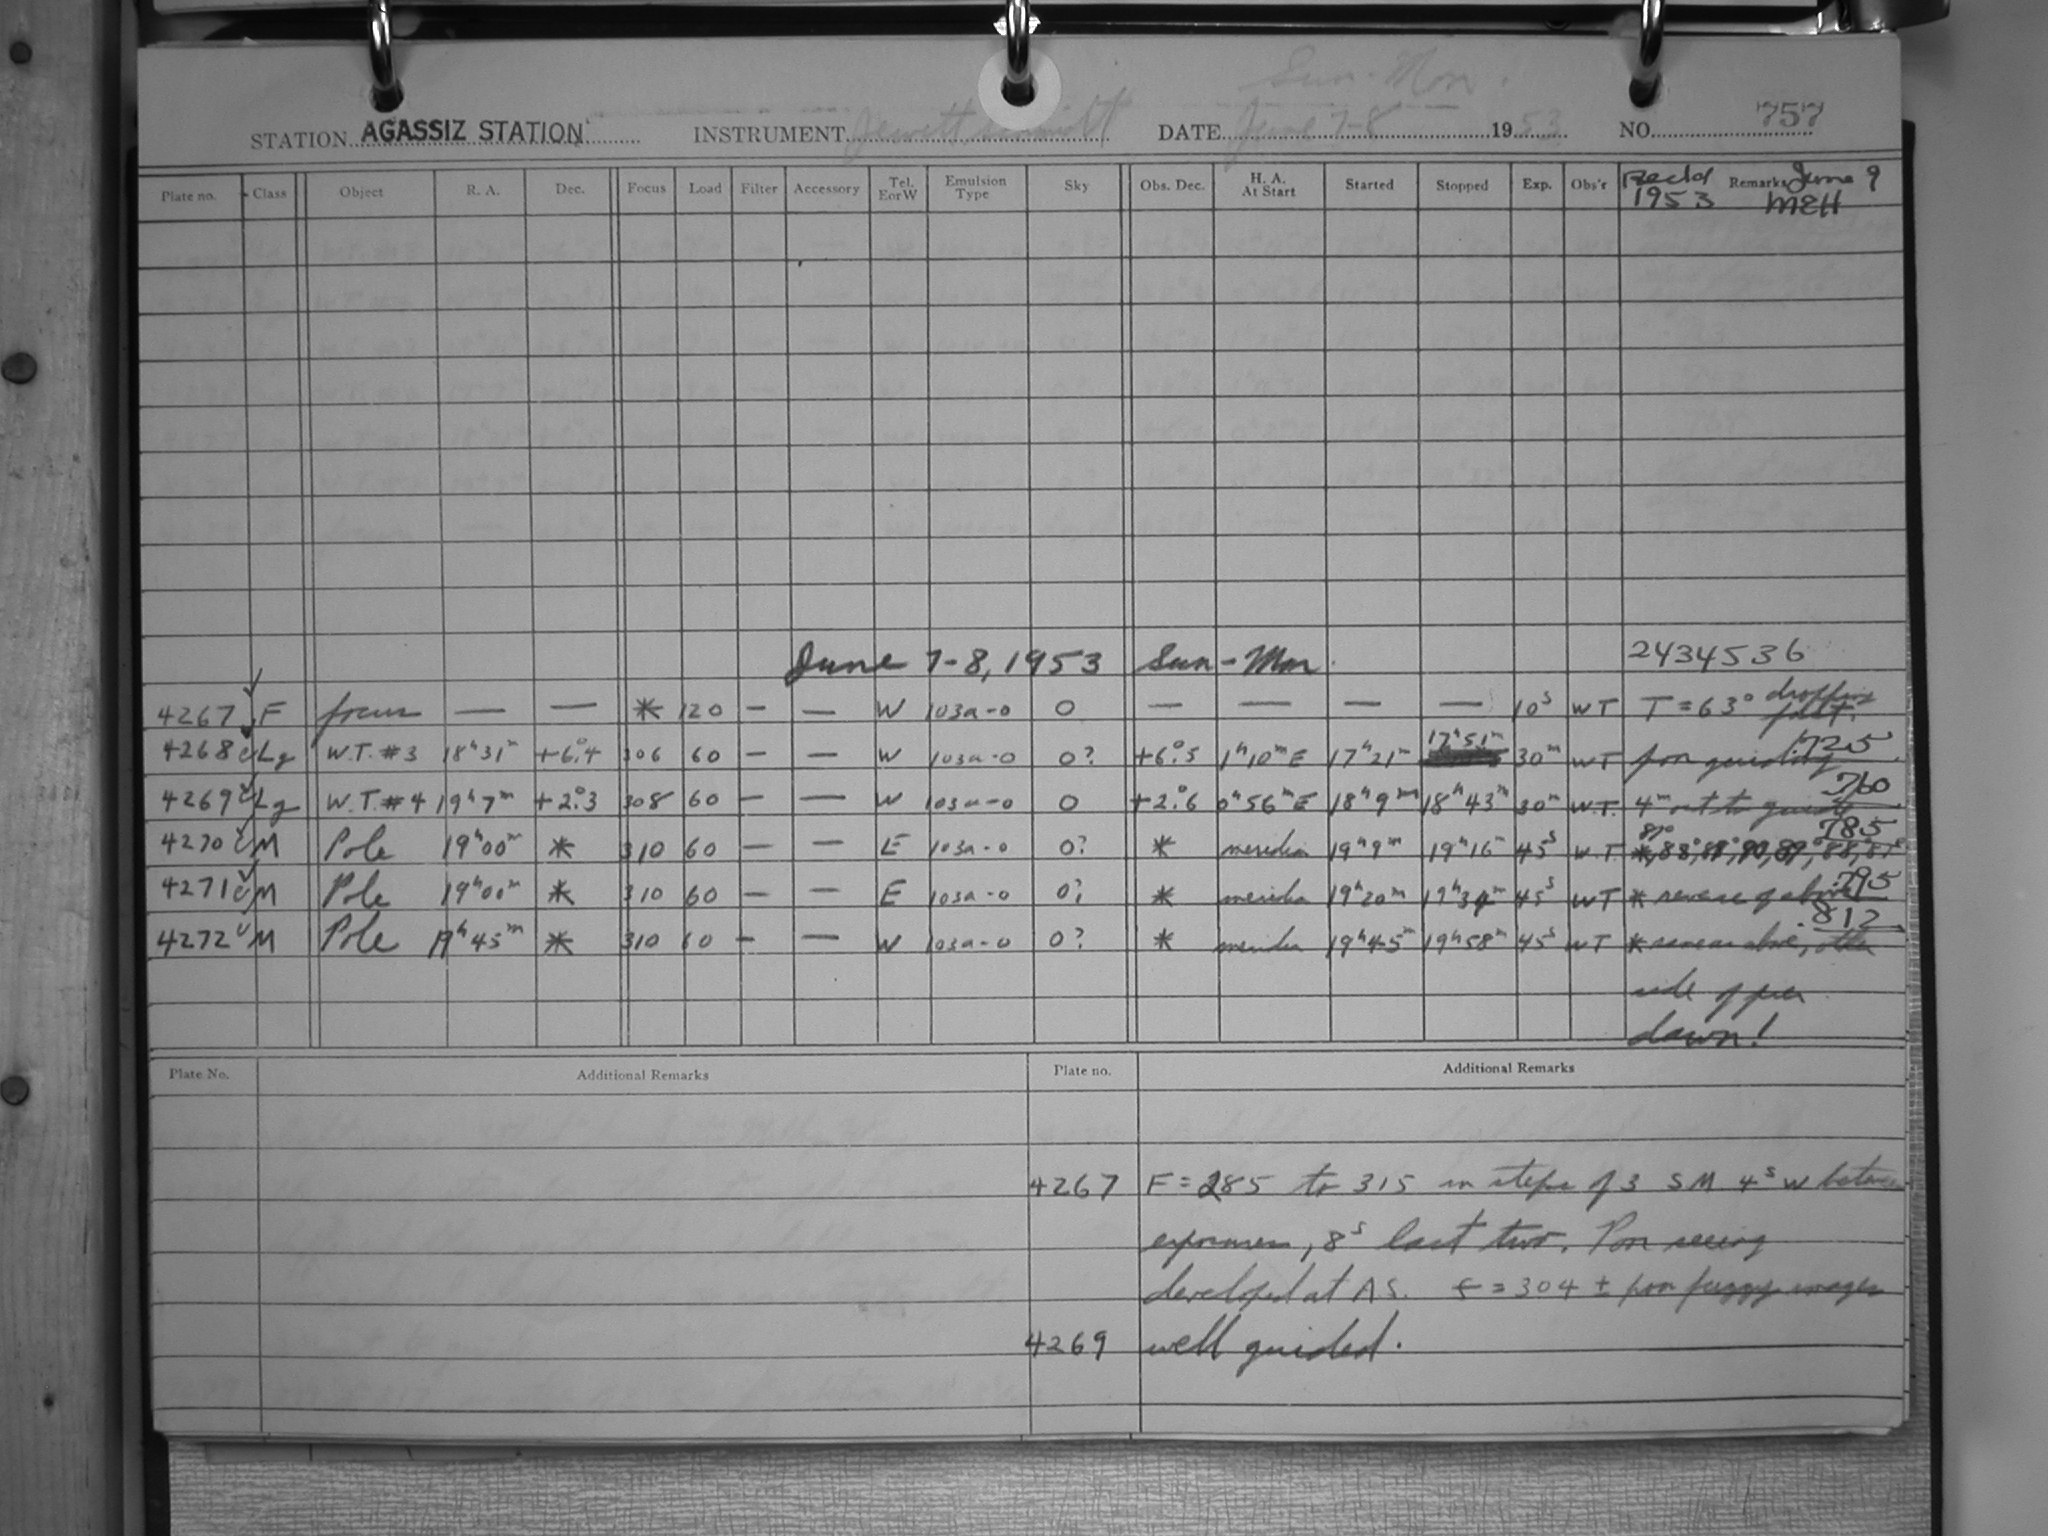 Sun - Mon.
STATION AGASSIZ STATION INSTRUMENT Jewett Schmidt DATE June 7-8 1953 NO. 757
Plate no. Class Object R. A. Dec. Focus Load Filter Accessory Tel. E or W Emulsion Type Sky Obs. Dec. H. A. At Start Started Stopped Exp. Obs'r Rec'd Remarks June 9
1953 MEH
June 7-8, 1953 Sun - Mon. 2434536
4267 F focus — — * 120 — — W 103a-0 0 — — — — 10s WT T = 63° dropping fast.
4268 Lg W.T. #3 18h31m +6°.4 306 60 — — W 103a-0 0? +6°.5 1h10mE 17h21m 17h51m 30m WT poor guiding .725
4269 Lg W.T. #4 19h7m +2°.3 308 60 — — W 103a-0 0 +2°.6 0h56mE 18h9m 18h43m 30m W.T. 4m out to guide .760
4270 M Pole 19h00m * 310 60 — — E 103a-0 0? * meridian 19h9m 19h16m 45s W.T. .785
4271 M Pole 19h00m * 310 60 — — E 103a-0 0? * meridian 19h20m 19h34m 45s WT * reverse of above .795
4272 M Pole 19h45m * 310 60 — — W 103a-0 0? * meridian 19h45m 19h58m 45s WT * same as above, other .812
side of pier
dawn!
Plate No. Additional Remarks Plate no. Additional Remarks
4267 F = 285 to 315 in steps of 3 SM 4s W between
exposures, 8s last two. Poor seeing
developed at AS. F = 304 ± poor fuzzy images
4269 well guided.